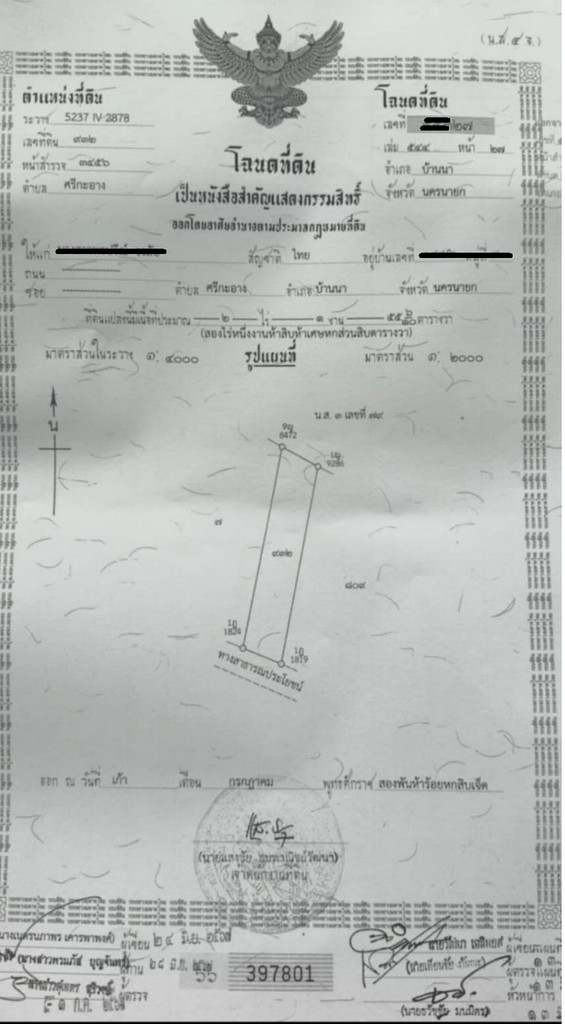 (น.ส.๔ จ.)
ตำแหน่งที่ดิน
ระวาง 5237 IV-2878
เลขที่ดิน ๙๓๒
หน้าสำรวจ ๓๔๕๖
ตำบล ศรีกะอาง
โฉนดที่ดิน
เลขที่ ๒๗
เล่ม ๕๔๔ หน้า ๒๗
อำเภอ บ้านนา
จังหวัด นครนายก
โฉนดที่ดิน
เป็นหนังสือสำคัญแสดงกรรมสิทธิ์
ออกโดยอาศัยอำนาจตามประมวลกฎหมายที่ดิน
ให้แก่ สัญชาติ ไทย อยู่บ้านเลขที่
ถนน
ซอย ตำบล ศรีกะอาง อำเภอ บ้านนา จังหวัด นครนายก
ที่ดินแปลงนี้มีเนื้อที่ประมาณ ๒ ไร่ ๑ งาน ๕๕ ๖/๑๐ ตารางวา
(สองไร่หนึ่งงานห้าสิบห้าเศษหกส่วนสิบตารางวา)
มาตราส่วนในระวาง ๑: ๔๐๐๐ รูปแผนที่ มาตราส่วน ๑: ๒๐๐๐
น.ส. ๓ เลขที่ ๗๙
น
8472
9286
๗
๙๓๒
๘๐๙
1824
1819
ทางสาธารณประโยชน์
ออก ณ วันที่ เก้า เดือน กรกฎาคม พุทธศักราช สองพันห้าร้อยหกสิบเจ็ด
เจ้าพนักงานที่ดิน
ผู้เขียน ๒๔ มิ.ย. ๒๕๖๗
ผู้ทาน ๒๘ มิ.ย. ๒๕๖๗
ผู้ตรวจ
ผู้เขียนแผนที่
ผู้ตรวจแผนที่
หัวหน้าการ
397801